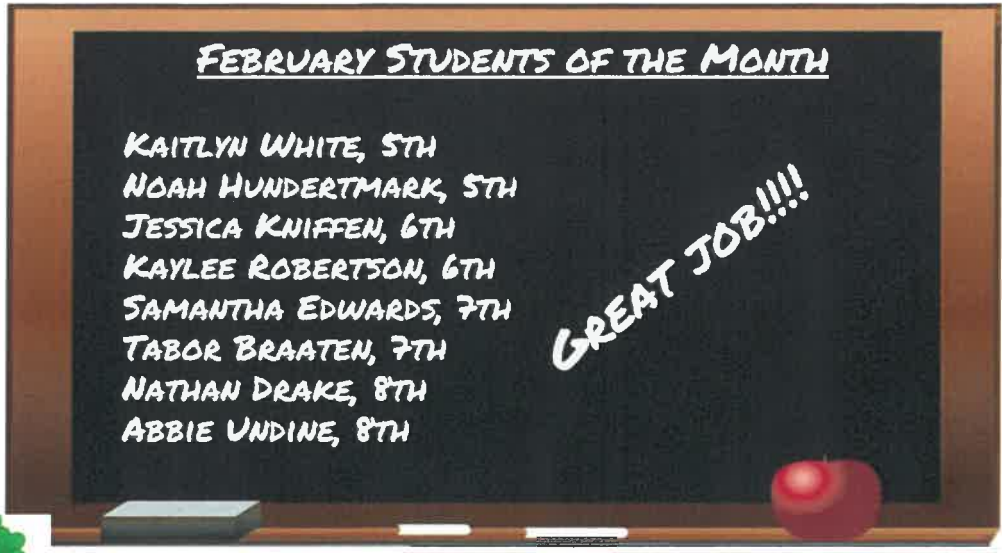 FEBRUARY STUDENTS OF THE MONTH
KAITLYN WHITE, 5TH
NOAH HUNDERTMARK, 5TH
JESSICA KNIFFEN, 6TH
KAYLEE ROBERTSON, 6TH
SAMANTHA EDWARDS, 7TH
TABOR BRAATEN, 7TH
NATHAN DRAKE, 8TH
ABBIE UNDINE, 8TH
GREAT JOB!!!!